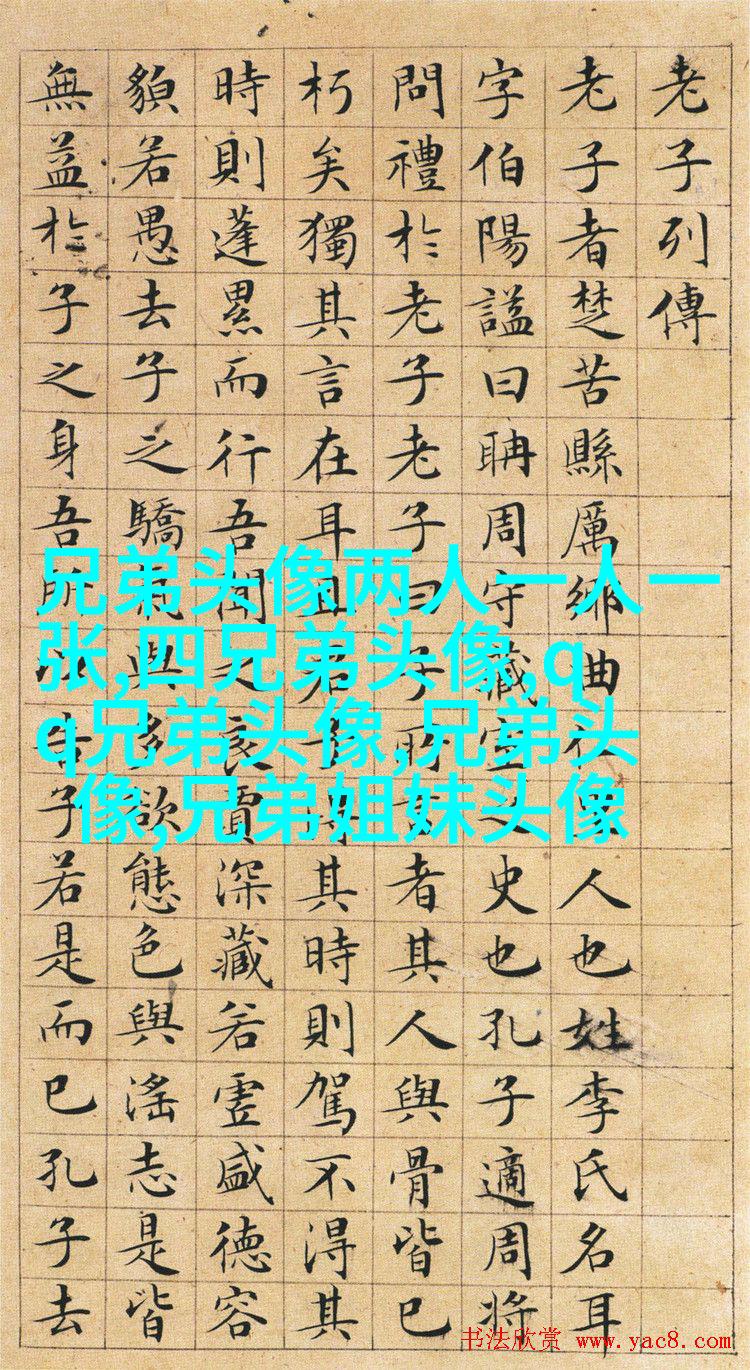 老子列傳
老子者楚苦縣厲鄉曲人也姓李氏名耳
字伯陽謚曰聃周守藏室之史也孔子適周將
問禮於老子老子曰子所者其人與骨皆已
朽矣獨其言在耳且君子得其時則駕不得其
時則蓬累而行吾聞之良賈深藏若虛盛德容
貌若愚去子之驕氣與多欲態色與滛志是皆
無益於子之身吾所以告子若是而已孔子去
兄弟头像两人一人一
张,四兄弟头像,q
q兄弟头像,兄弟头
像,兄弟姐妹头像
书法欣赏 www.yac8.com